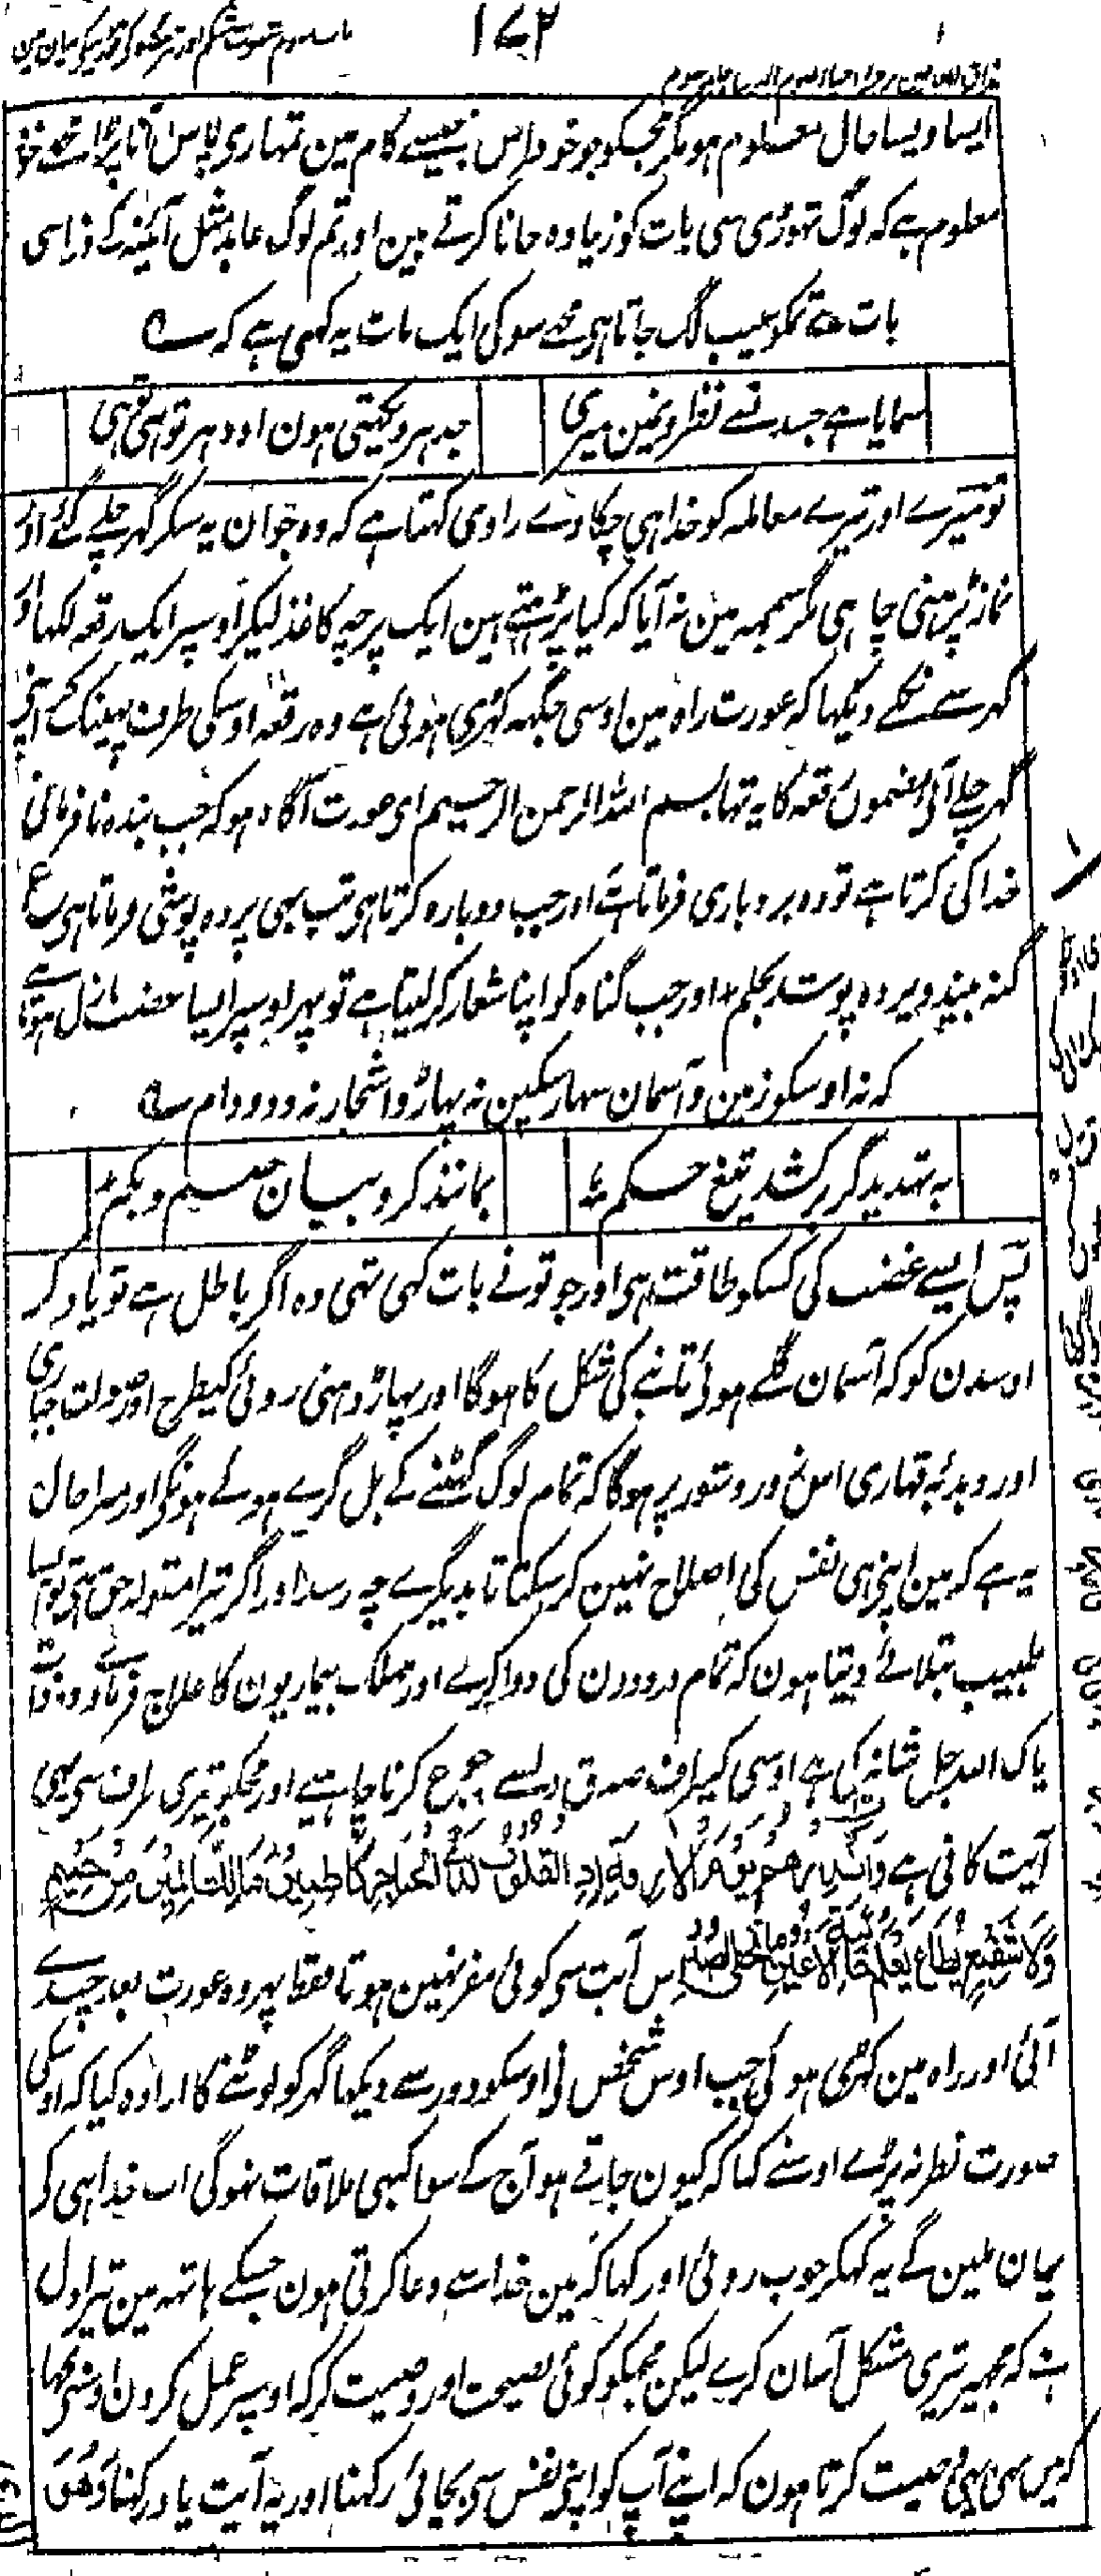 ۱۷۲
ایسا ویسا حال معلوم ہو مگر مجکو جو خود اس جیسے کام مین تمہاری پاس آنا پڑا
معلوم ہے کہ لوگ تہوڑی سی بات کو زیادہ جانا کرتے ہین اور تم لوگ عابد مثل آئینہ کے ذراسی
بات سے تمکو عیب لگ جاتا ہی سو کی ایک بات یہ کہی ہے کہ ؎
سمایا ہے جب سے تو نظرونمین میری
جدہر دیکھتی ہون اودہر تو ہی تو ہی
تو میرے اور تیرے معاملہ کو خدا ہی چکا دے راوی کہتا ہے کہ وہ جوان یہ سنکر گہر چلے گئے اور
نماز پڑہنی چاہی مگر سمجہہ مین نہ آیا کہ کیا پڑہتے ہین ایک پرچہ کاغذ لیکر اوسپر ایک رقعہ لکہا اور
گہر سے نکلے دیکہا کہ عورت راہ مین اوسی جگہہ کہڑی ہوئی ہے وہ رقعہ اوسکی طرف پہینک کے اپنے
گہر چلے آئی مضمون رقعہ کا یہ تہا بسم اللہ الرحمن الرحیم ای عورت آگاہ ہو کہ جب بندہ نافرمانی
خدا کی کرتا ہے تو وہ بردباری فرماتا ہے اور جب دوبارہ کرتا ہی تب بہی پردہ پوشی فرماتا ہی ع
گنہ بیند و پردہ پوشد بحلم ٭ اور جب گناہ کو اپنا شعار کر لیتا ہے تو پہر اوسپر ایسا غضب نازل ہوتا ہے
کہ نہ اوسکو زمین و آسمان سہار سکین نہ پہاڑ و اشجار نہ دد و دام ؎
بہ تہدید گر برکشد تیغ حکم ٭
بمانند کروبیان صم و بکم ٭
پس ایسے غضب کی کسکو طاقت ہی اور جو تونے بات کہی تہی وہ اگر باطل ہے تو یاد کر
اوسدن کو کہ آسمان گلے ہوئی تانبے کی شکل کا ہوگا اور پہاڑ دہنی روئی کیطرح اور صولت جباری
اور دبدبہ قہاری اس زور و شور پر ہوگا کہ تمام لوگ گہٹنے کے بل گرے ہوئے ہونگی اور میرا حال
یہ ہے کہ مین اپنی ہی نفس کی اصلاح نہین کر سکتا تا بدیگرے چہ رسد اور اگر تیرا مقولہ حق ہی تو ایسا
طبیب بتلائے دیتا ہون کہ تمام دردون کی دوا کرے اور مہلک بیماریون کا علاج فرمائے وہ ذات
پاک اللہ جل شانہ کی ہے اوسی کیطرف صدق دل سے رجوع کرنا چاہیے اور مجکو تیری طرف سی یہی
آیت کافی ہے وَاَنْذِرْهُمْ يَوْمَ الْاٰزِفَةِ اِذِ الْقُلُوْبُ لَدَى الْحَنَاجِرِ كَاظِمِيْنَ مَا لِلظَّالِمِيْنَ مِنْ حَمِيْمٍ
وَّلَا شَفِيْعٍ يُّطَاعُ يَعْلَمُ خَائِنَةَ الْاَعْيُنِ وَمَا تُخْفِى الصُّدُوْرُ اس آیت سی کوئی مفر نہین ہوتا فقط پہر وہ عورت بعد چندے
آئی اور راہ مین کہڑی ہوئی جب اوس شخص نی اوسکو دور سے دیکہا گہر کو لوٹنے کا ارادہ کیا کہ اوسکی
صورت نظر نہ پڑے اوسنے کہا کہ کیون جاتے ہو آج کے سوا کبہی ملاقات نہوگی اب خدا ہی کے
یہان ملین گے یہ کہکر خوب روئی اور کہا کہ مین خدا سے دعا کرتی ہون جسکے ہاتہہ مین تیرا دل
ہے کہ مجہپر تیری مشکل آسان کرے لیکن مجہکو کوئی نصیحت اور وصیت کر کہ اوسپر عمل کرون اوسنی کہا
کہ مین یہی وصیت کرتا ہون کہ اپنے آپ کو اپنی نفس سی بچائی رکہنا اور یہ آیت یاد رکہنا وَهُوَ